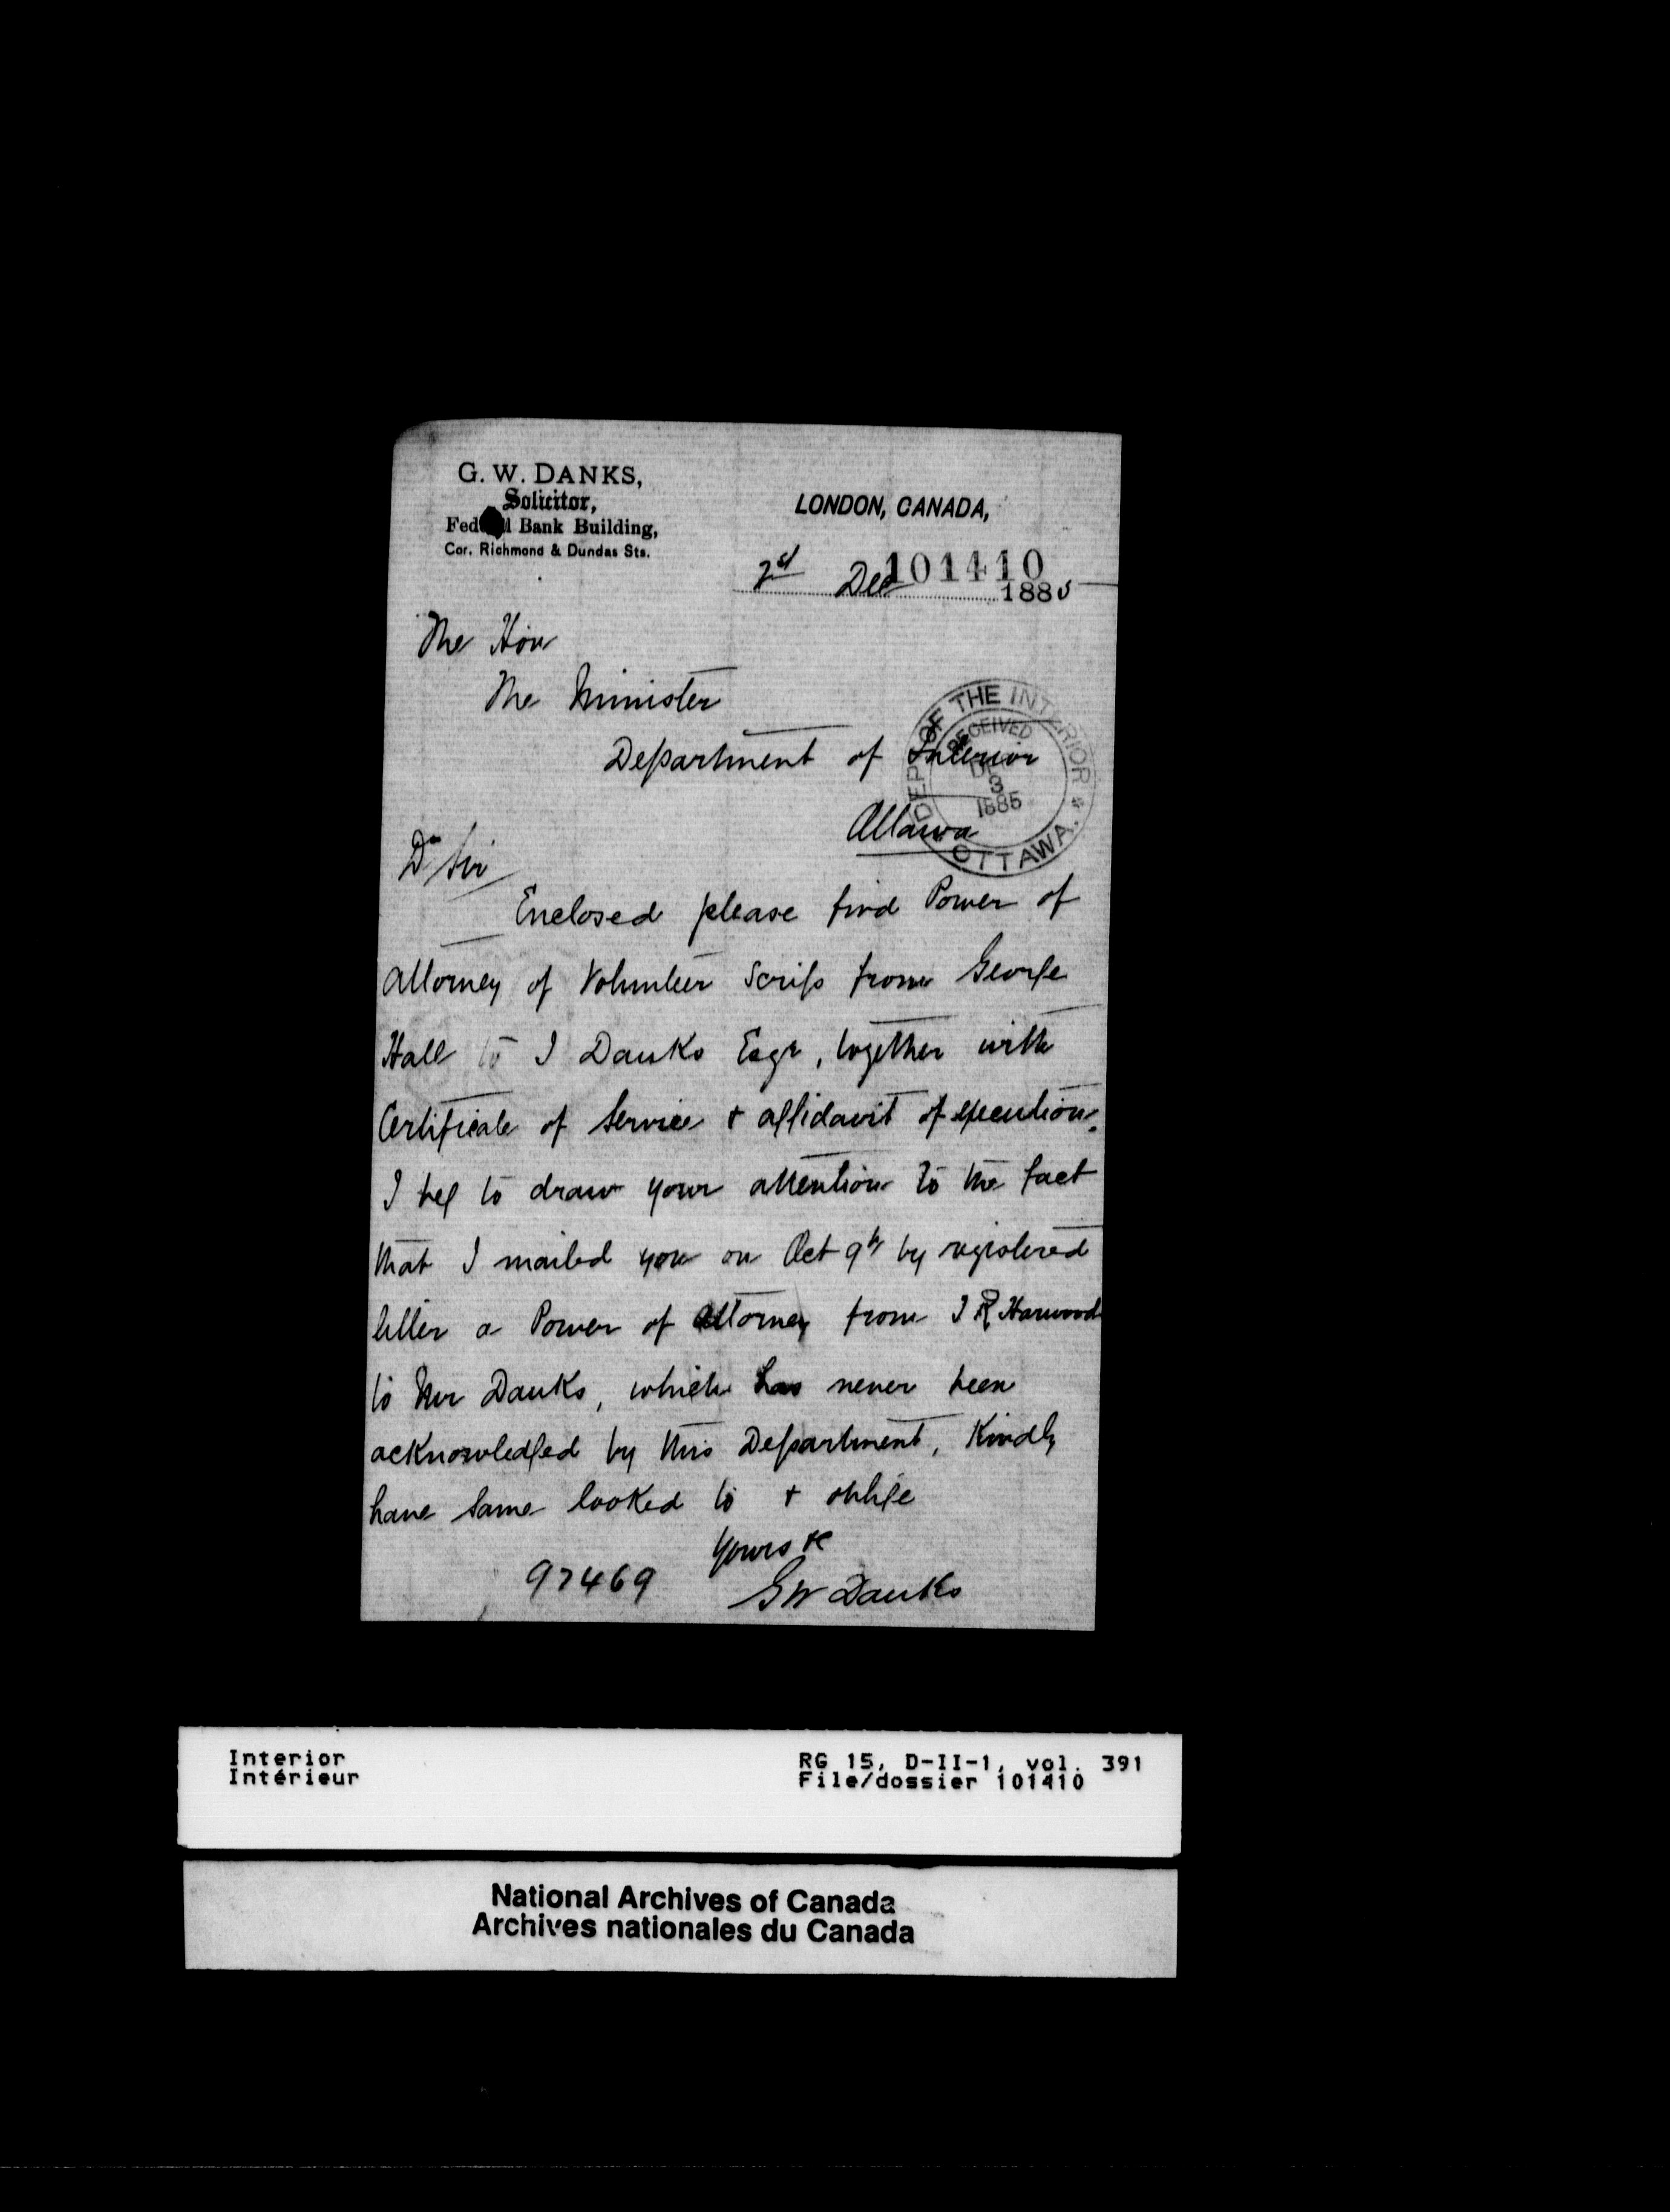 G. W. DANKS,
Solicitor,
Federal Bank Building,
Cor. Richmond & Dundas Sts.
LONDON, CANADA,
101410
2d Dec 1885
The Hon
The Minister
Department of Interior
Ottawa
DEPT OF THE INTERIOR * OTTAWA.
RECEIVED
DEC
3
1885
Dr Sir
Enclosed please find Power of
Attorney of Volunteer Scrip from George
Hall to I Danks Esqr, together with
Certificate of Service & affidavit of execution.
I beg to draw your attention to the fact
that I mailed you on Oct 9th by registered
letter a Power of Attorney from J R Harwood
to Mr Danks, which has never been
acknowledged by this Department, Kindly
have same looked to & oblige
Yours &c
G W Danks
97469
Interior
Intérieur
RG 15, D-II-1, vol. 391
File/dossier 101410
National Archives of Canada
Archives nationales du Canada